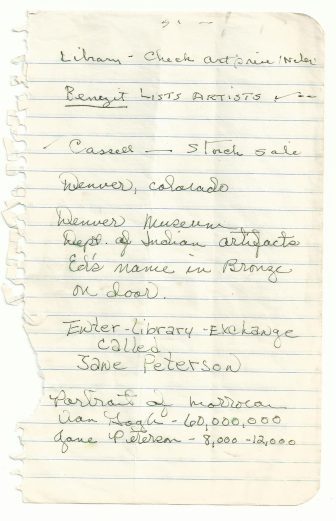 Library - Check art price index
Benezit LISTS ARTISTS
Cassell — Stock sale
Denver, Colorado
Denver Museum
Dept. of Indian artifacts
Ed's name in Bronze
on door.
Inter-Library-Exchange
called
Jane Peterson
Portrait of Morrocan
Van Gogh - 60,000,000
Jane Peterson - 8,000-12,000